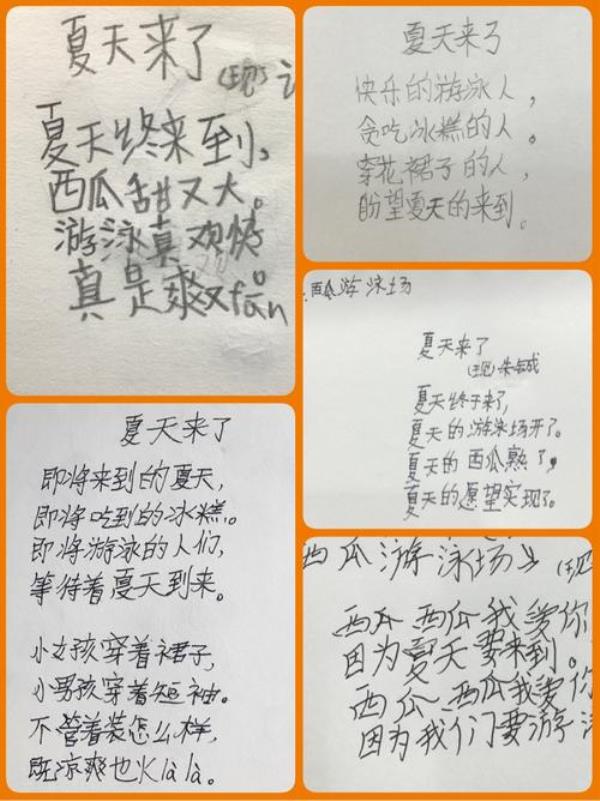 夏天来了
(现)
夏天终来到,
西瓜甜又大。
游泳真欢快
真是爽又fān
夏天来了
快乐的游泳人,
贪吃冰糕的人。
穿花裙子的人,
盼望夏天的来到。
西瓜游泳场
夏天来了
(现)朱
夏天终于来了,
夏天的游泳场开了。
夏天的西瓜熟了,
夏天的愿望实现了。
夏天来了
即将来到的夏天,
即将吃到的冰糕。
即将游泳的人们,
等待着夏天到来。
小女孩穿着裙子,
小男孩穿着短袖。
不管着装怎么样,
既凉爽也火là là。
西瓜游泳场 (现
西瓜西瓜我爱你
因为夏天要来到。
西瓜、西瓜我爱你
因为我们要游